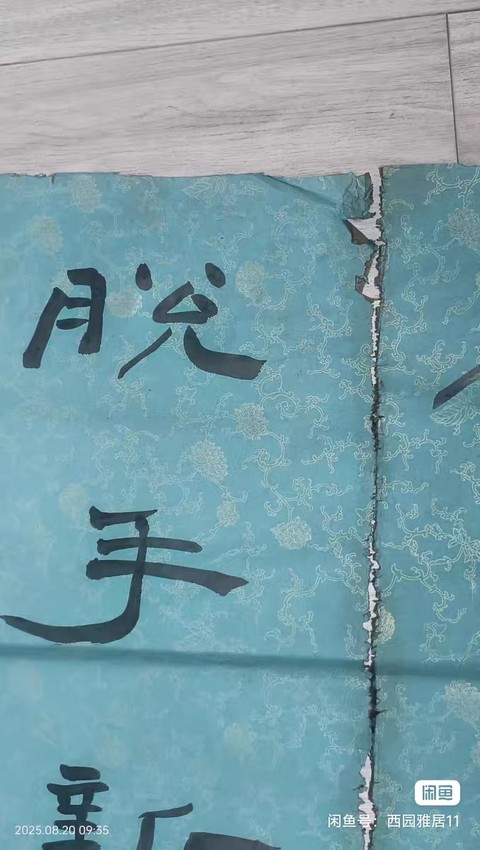 脱
手
新
2025.08.20 09:35
闲鱼
闲鱼号：西园雅居11